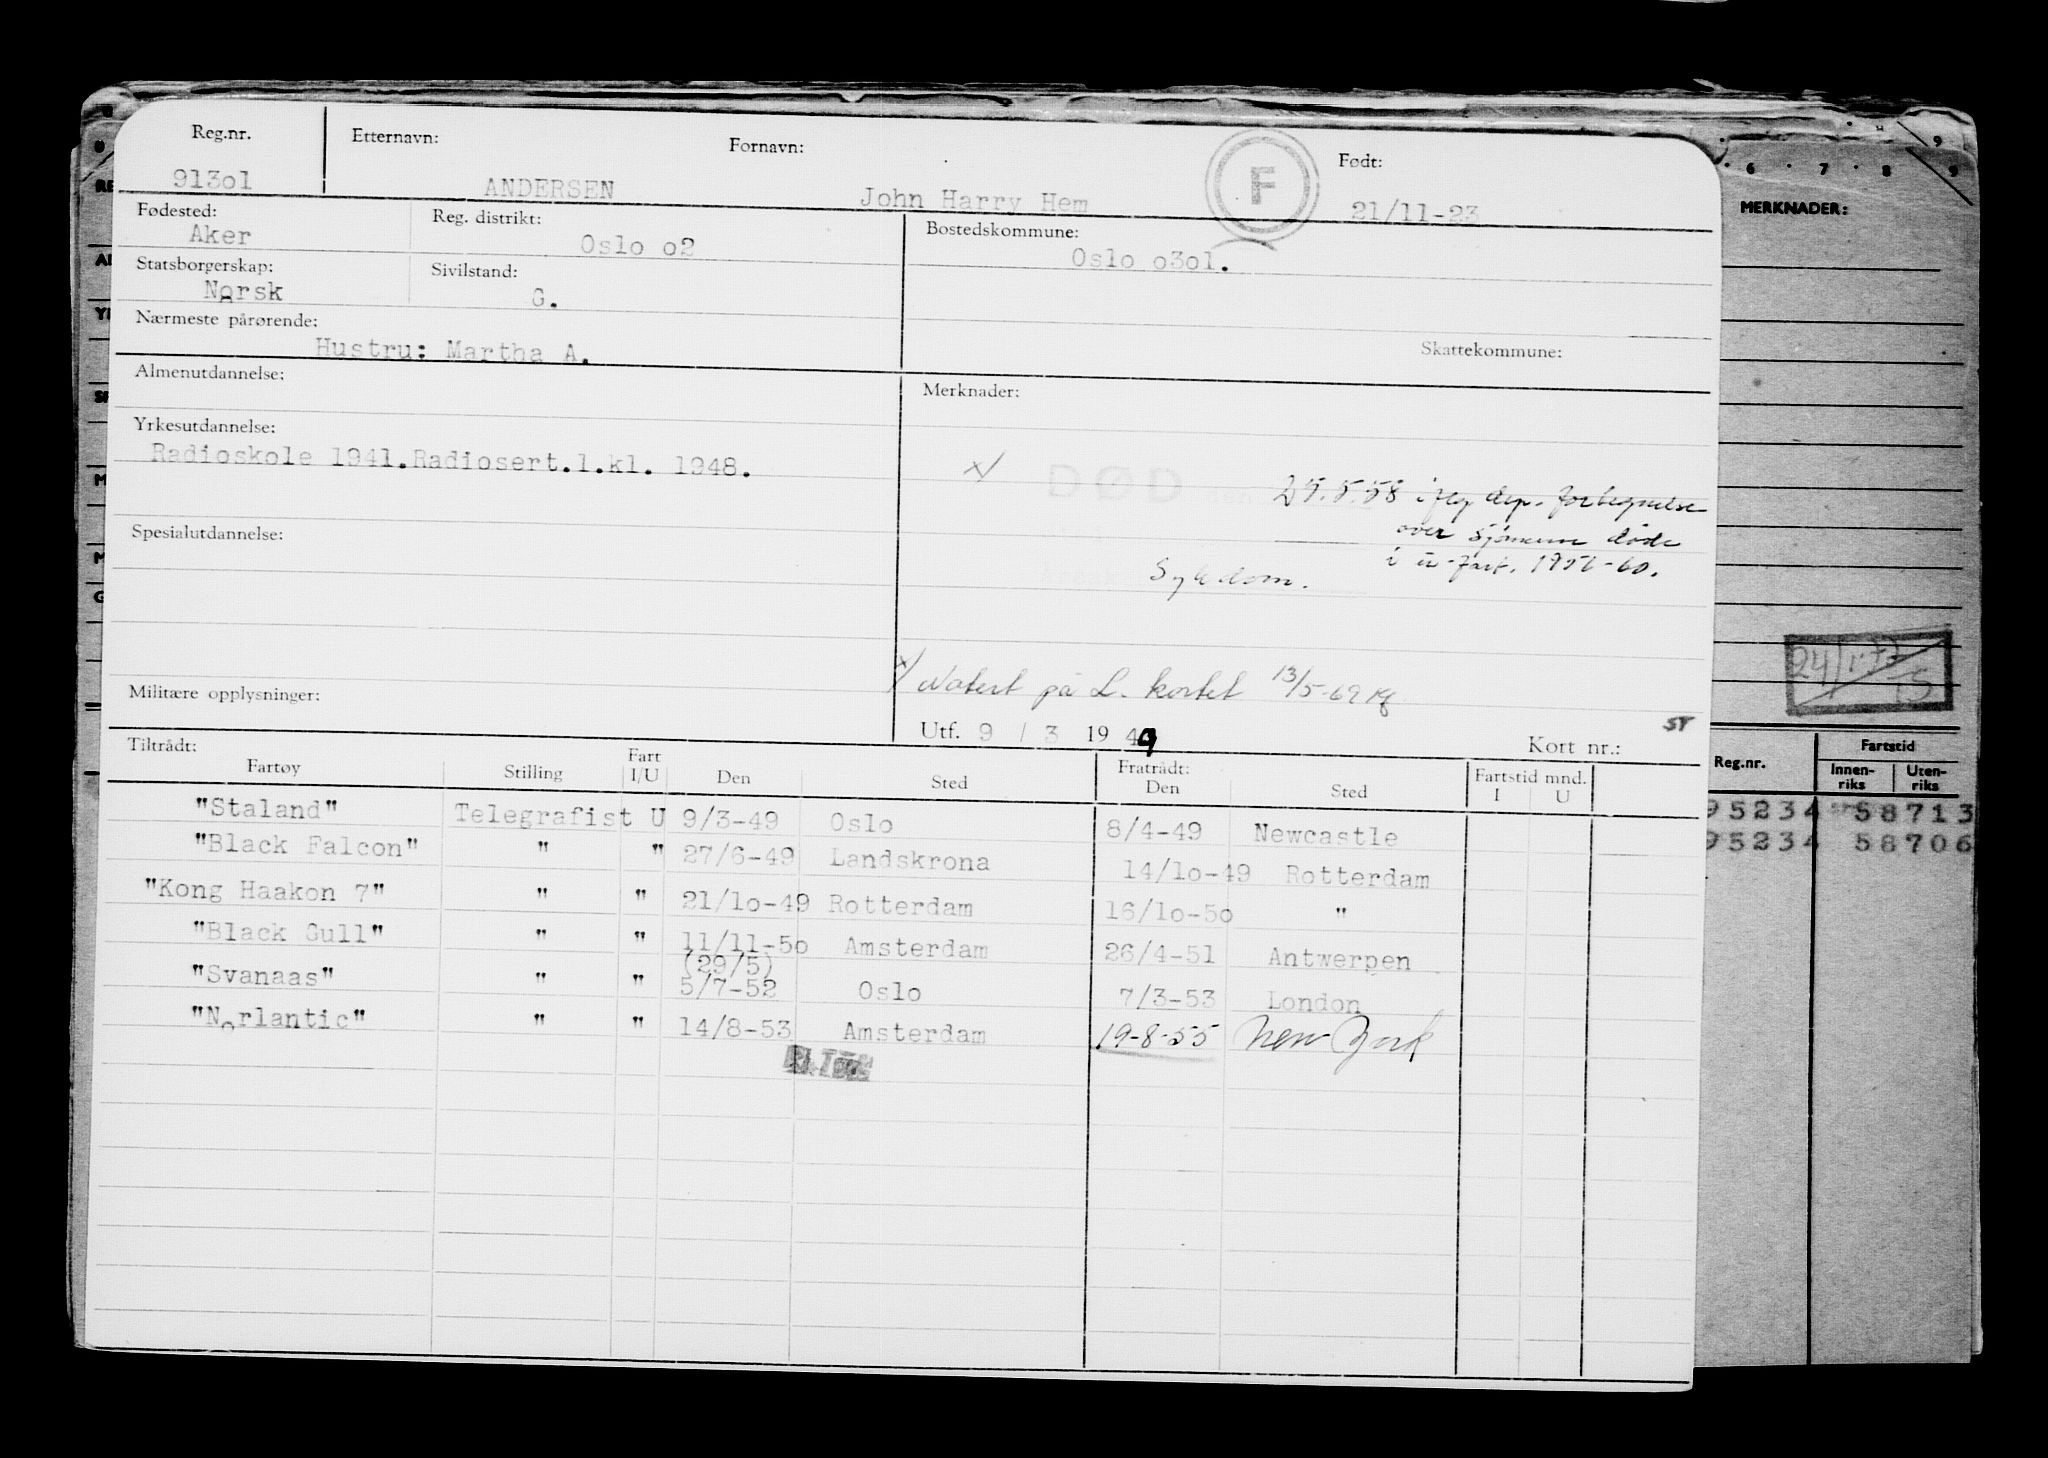 Reg.nr. Etternavn: Fornavn: F Født:
913o1 ANDERSEN John Harry Hem 21/11-23
Fødested: Reg. distrikt: Bostedskommune:
Aker Oslo o2 Oslo o3o1.
Statsborgerskap: Sivilstand:
Norsk G.
Nærmeste pårørende: Skattekommune:
Hustru: Martha A.
Almenutdannelse: Merknader:
Yrkesutdannelse:
Radioskole 1941. Radiosert.1.kl. 1948.
x/ DØD den 25.5.58 i flg dep. fortegnelse
over sjömenn døde
i u-fart. 1956-60.
Sykdom.
Spesialutdannelse:
x/ Notert på L. kortet 13/5-69
Militære opplysninger:
Utf. 9 / 3 1949 Kort nr.:
Tiltrådt: Fratrådt:
Fartøy Stilling Fart I/U Den Sted Den Sted Fartstid mnd. I U
"Staland" Telegrafist U 9/3-49 Oslo 8/4-49 Newcastle
"Black Falcon" " " 27/6-49 Landskrona 14/1o-49 Rotterdam
"Kong Haakon 7" " " 21/1o-49 Rotterdam 16/1o-5o "
"Black Gull" " " 11/11-5o Amsterdam 26/4-51 Antwerpen
(29/5)
"Svanaas" " " 5/7-52 Oslo 7/3-53 London
"Norlantic" " " 14/8-53 Amsterdam 19-8-55 New York
9
6 7 8 9
MERKNADER:
Reg.nr. Fartstid
Innen-riks Uten-riks
95234 58713
95234 58706